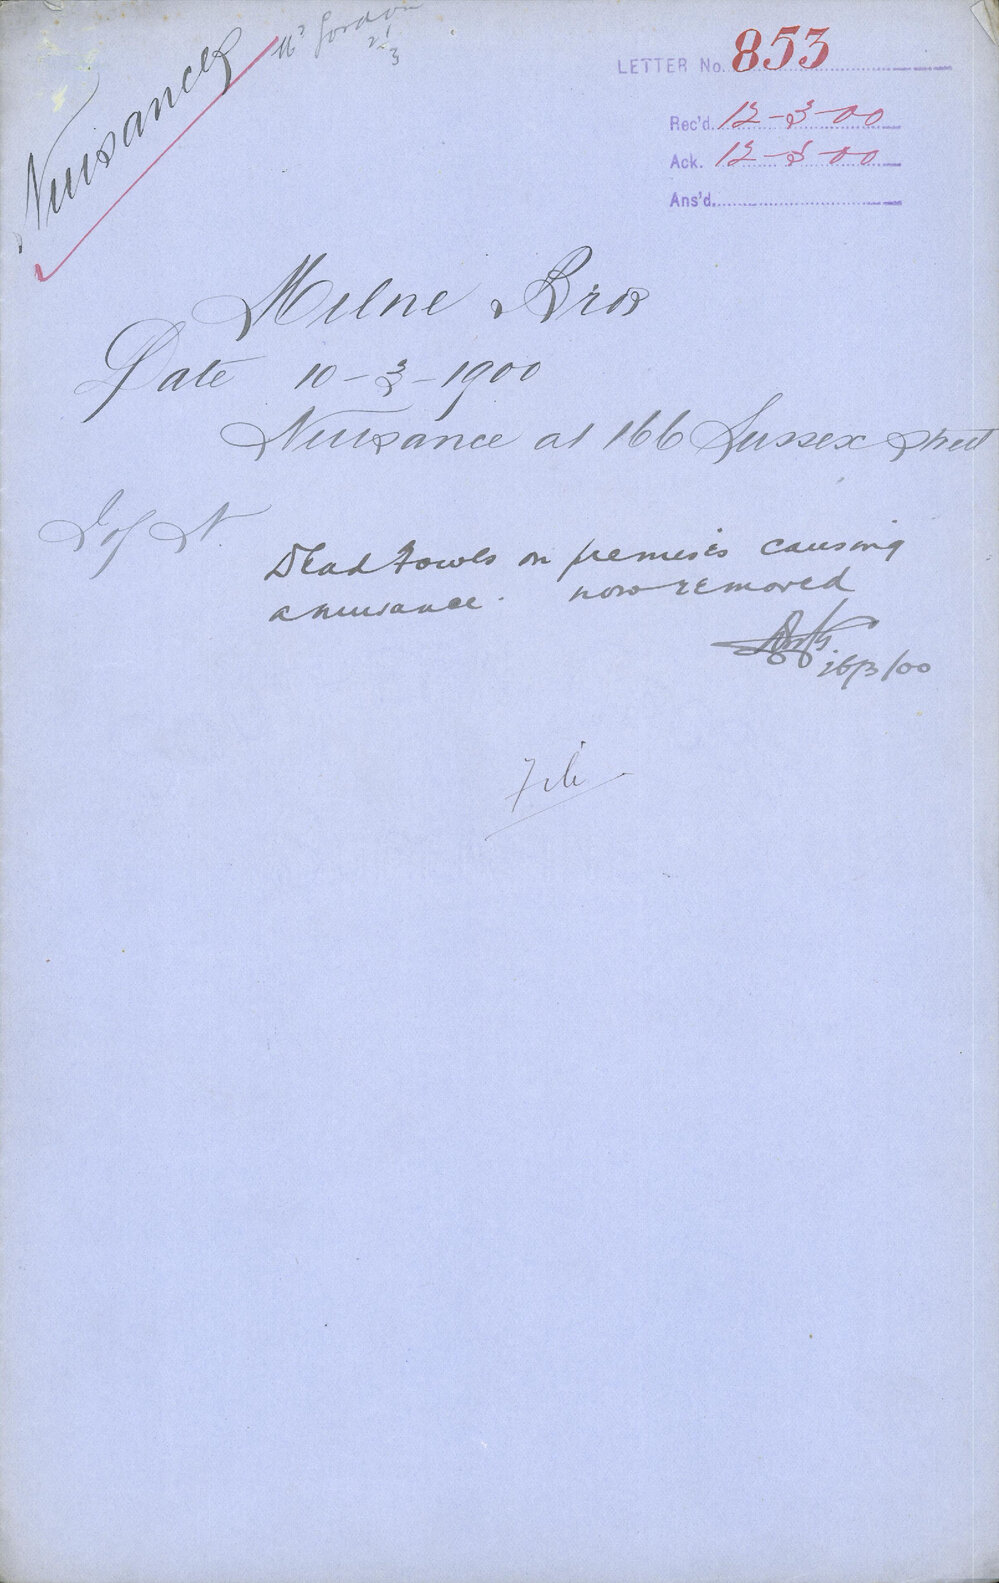 Nuisances
Mr Gordon
LETTER No. 853
Rec'd. 12-3-00
Ack. 12-3-00
Ans'd.
Milne Bros
Date 10-3-1900
Nuisance at 166 Sussex Street
I of N
Dead Fowls on premises causing
a nuisance. now removed
16/3/00
File